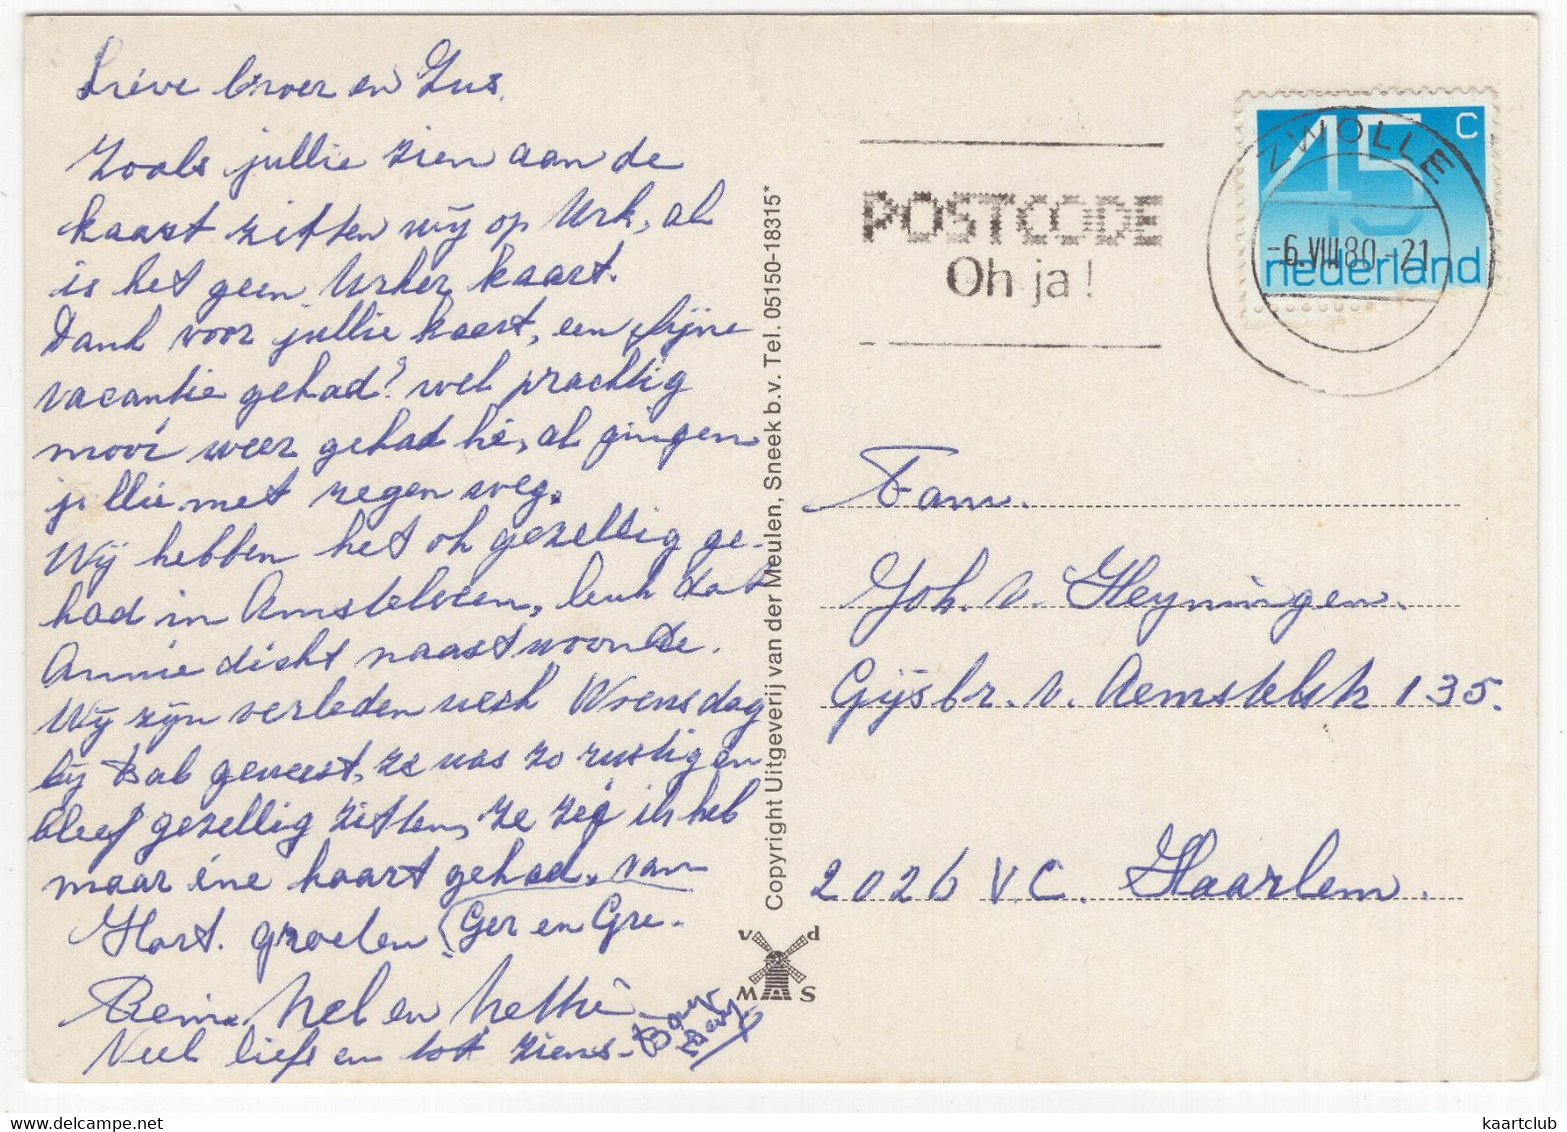 Lieve broer en Zus.
Zoals jullie zien aan de
kaart zitten wij op Urk, al
is het geen Urker kaart.
Dank voor jullie kaart, een fijne
vacantie gehad? wel prachtig
mooi weer gehad hè, al gingen
jullie met regen weg.
Wij hebben het oh gezellig ge-
had in Amstelveen, leuk dat
Annie dicht naast woonde.
Wij zijn verleden week Woensdag
bij geweest, ze was zo rustig en
bleef gezellig zitten, ze zeg ik heb
maar éne kaart gehad, van
Hart. groeten (Ger en Gre.
Rein. Nel en
Veel liefs en tot ziens.
Copyright Uitgeverij van der Meulen, Sneek b.v. Tel. 05150-18315*
v d
M S
POSTCODE
Oh ja!
ZWOLLE
-6.VIII80-21
45 c
nederland
Fam.
Joh. v. Heyningen.
Gijsbr. v. Aemstelstr 135.
2026 V.C. Haarlem.
kaartclub